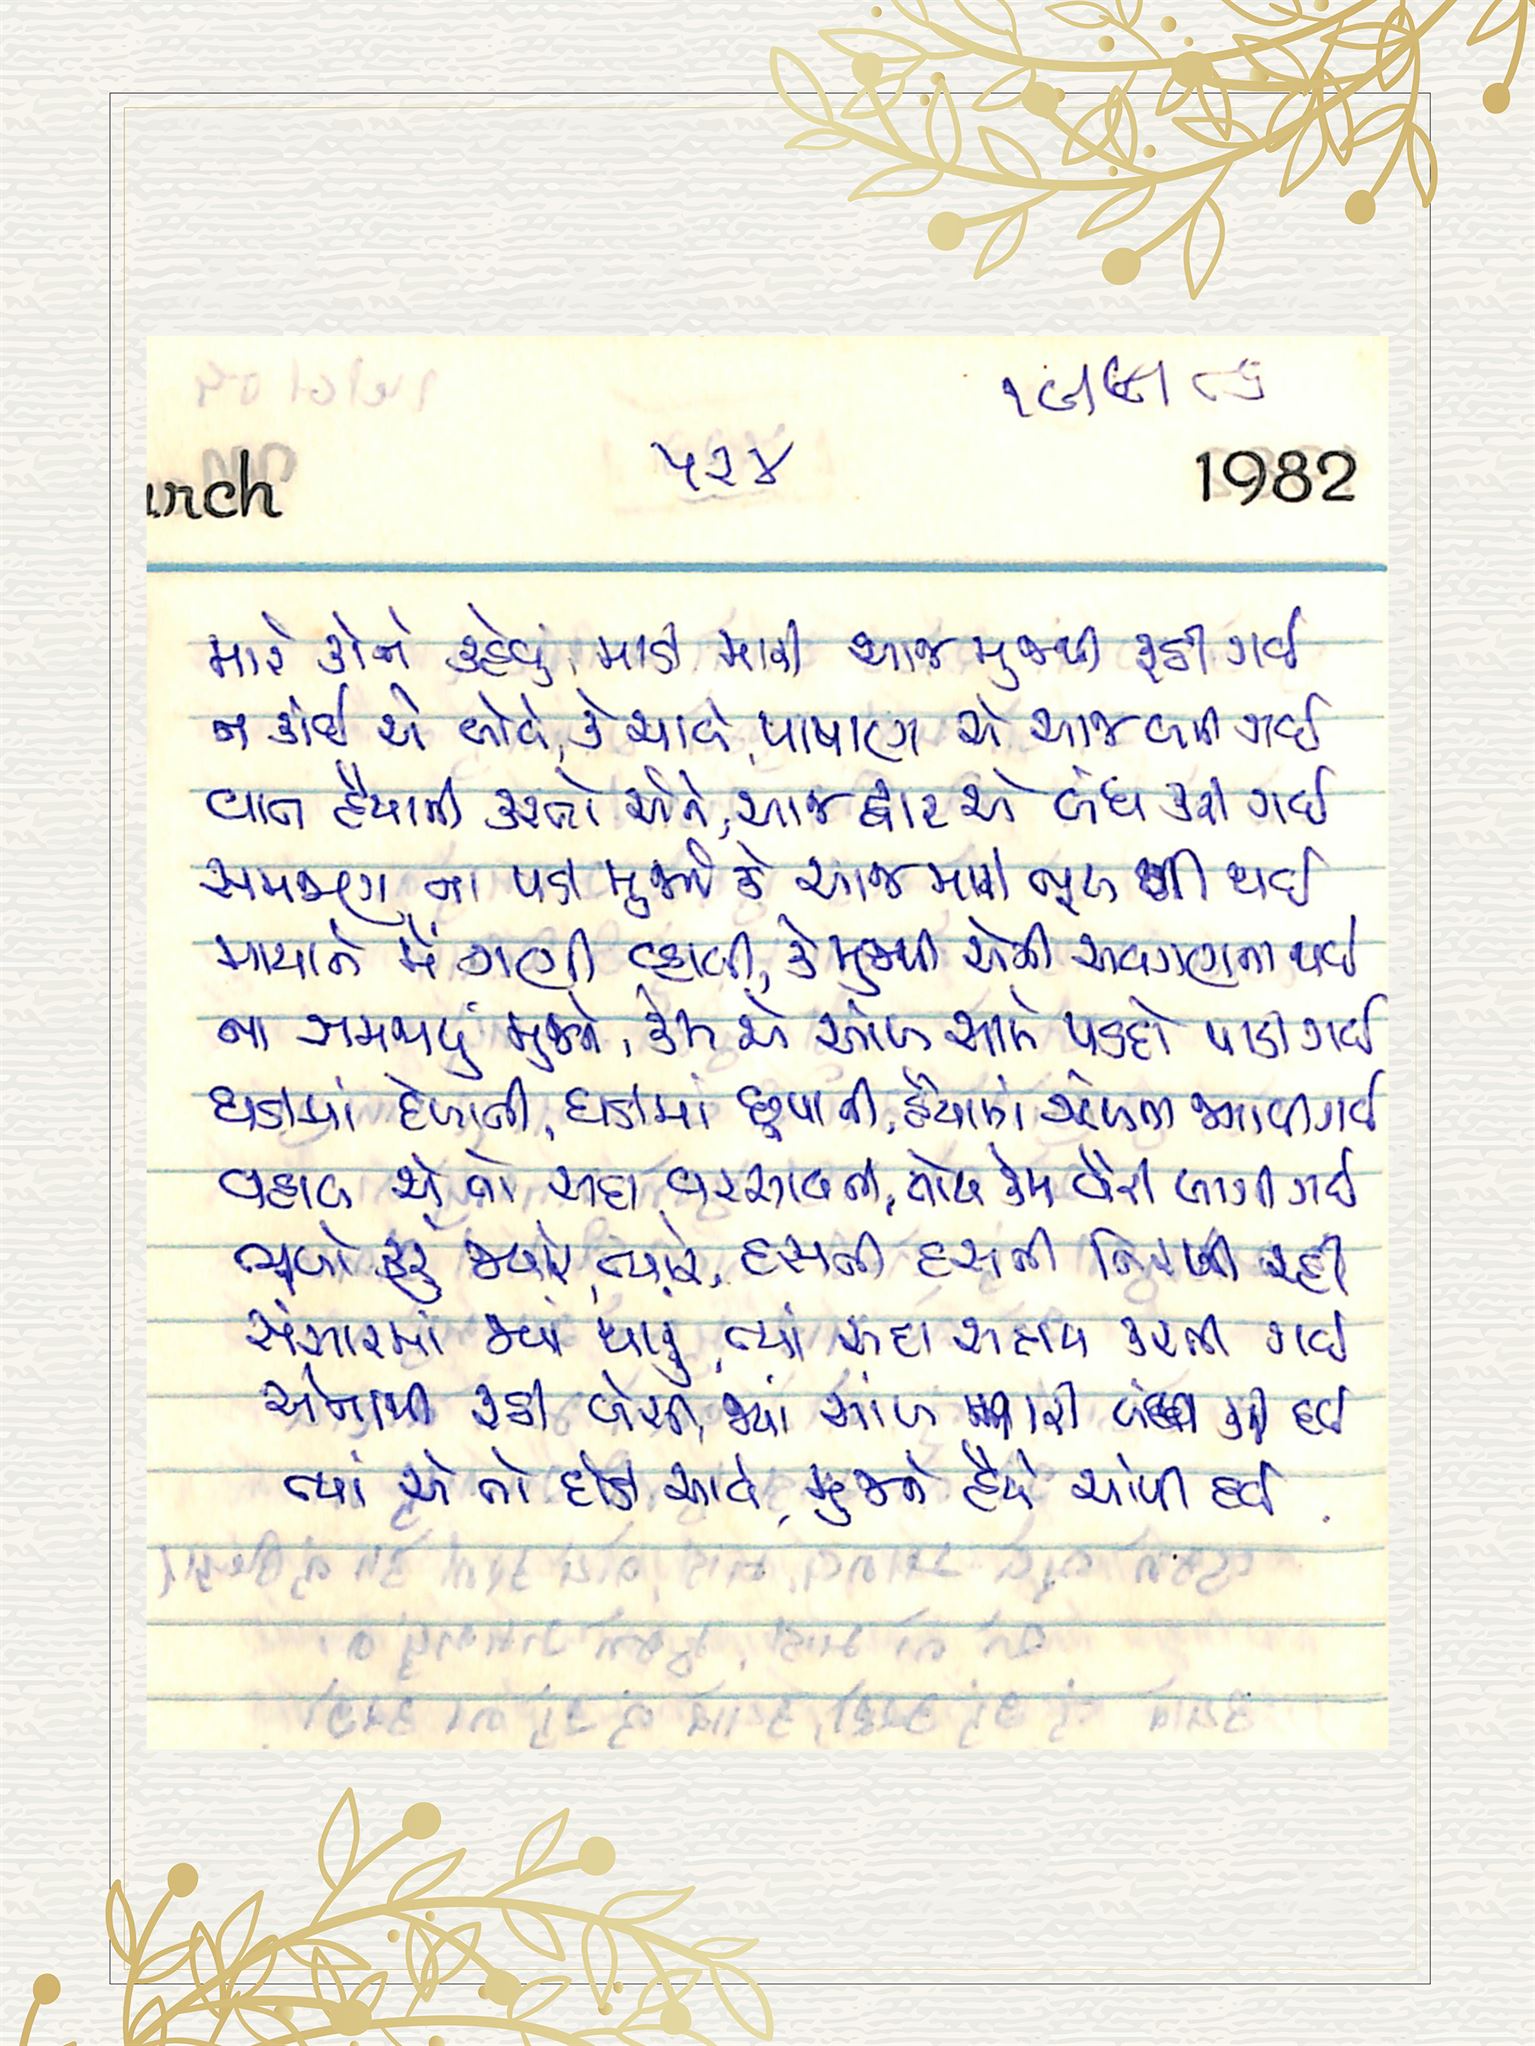 ૫૨૪
arch 1982
મારે કોને કહેવું, માડી મારી આજ મુજથી રૂઠી ગઈ
ન કાંઈ એ બોલે, કે ચાલે, પાષાણ એ આજ બની ગઈ
વાત હૈયાની કરતો એને, આજ દ્વાર એ બંધ કરી ગઈ
સમજણ ના પડી મુજને કે આજ મારી ભૂલ શી થઈ
માયાને મેં ગણી વ્હાલી, કે મુજથી એની અવગણના થઈ
ના સમજાયું મુજને, કેમ એ આંખ આડે પડદો પાડી ગઈ
ઘડીમાં દેખાતી, ઘડીમાં છુપાતી, હૈયામાં ઝંખના જગાવી ગઈ
વહાલ એ તો સદા વરસાવતી, તોય કેમ વૈરી લાગી ગઈ
ભૂલો કરું જ્યારે ત્યારે, હસતી હસતી નિરખી રહી
સંસારમાં જ્યાં થાકું, ત્યાં સદા સહાય કરતી ગઈ
એનાથી રૂઠી બેસી, જ્યાં આંખ મારી બંધ કરી દઈ
ત્યાં એ તો દોડી આવે, મુજને હૈયે ચાંપી દઈ.